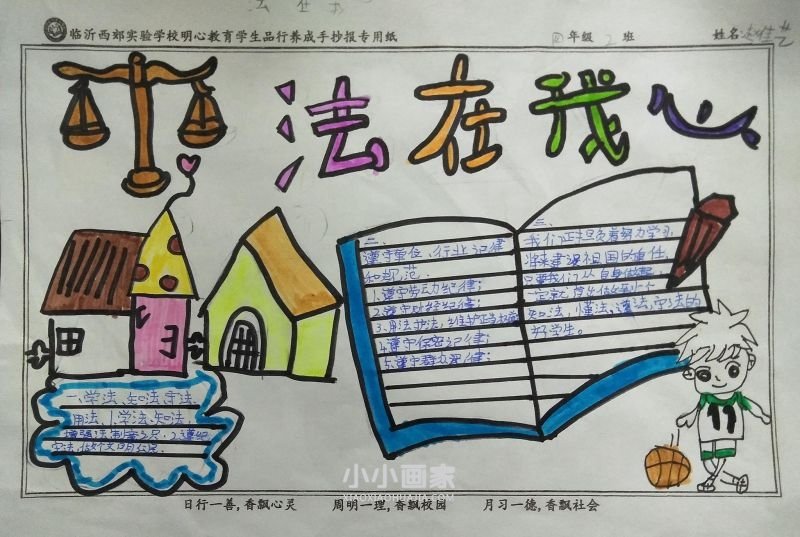 法在我
临沂西郊实验学校明心教育学生品行养成手抄报专用纸
四年级 2 班
姓名
法在我心
一、学法、知法、守法、
用法、1.学法、知法
增强法制意识. 2.遵纪
守法,做个文明公民.
二、
遵守单位、行业纪律
和规范.
1.遵守劳动纪律;
2.遵守财经纪律;
3.用法护法,维护正当权益
4.遵守保密纪律;
5.遵守群众纪律;
三、
我们正担负着努力学习,
将来建设祖国的重任,
只要我们从自身做起,
一定就能做好个
知法,懂法,遵法,守法的
好学生。
小小画家
XIAOXIAOHUAJIA.COM
日行一善,香飘心灵 周明一理,香飘校园 月习一德,香飘社会